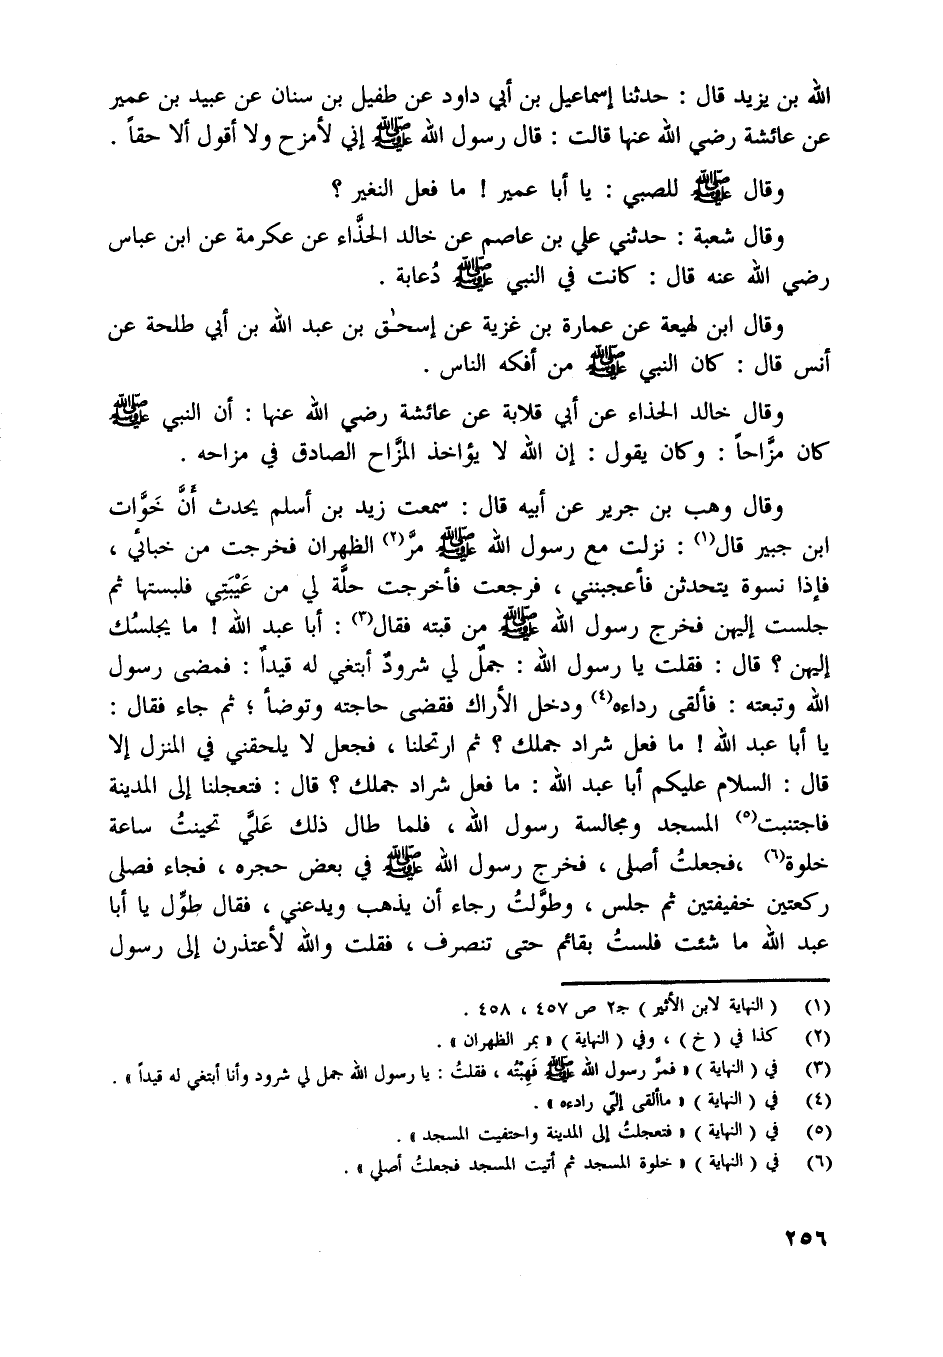 الله بن يزيد قال : حدثنا إسماعيل بن أبي داود عن طفيل بن سنان عن عبيد بن عمير
عن عائشة رضي الله عنها قالت : قال رسول الله ﷺ إني لأمزح ولا أقول ألا حقاً .
وقال ﷺ للصبي : يا أبا عمير ! ما فعل النغير ؟
وقال شعبة : حدثني علي بن عاصم عن خالد الحذَّاء عن عكرمة عن ابن عباس
رضي الله عنه قال : كانت في النبي ﷺ دُعابة .
وقال ابن لهيعة عن عمارة بن غزية عن إسحـٰق بن عبد الله بن أبي طلحة عن
أنس قال : كان النبي ﷺ من أفكه الناس .
وقال خالد الحذاء عن أبي قلابة عن عائشة رضي الله عنها : أن النبي ﷺ
كان مزَّاحاً : وكان يقول : إن الله لا يؤاخذ المزَّاح الصادق في مزاحه .
وقال وهب بن جرير عن أبيه قال : سمعت زيد بن أسلم يحدث أَنَّ خَوَّات
ابن جبير قال(١) : نزلت مع رسول الله ﷺ مرَّ(٢) الظهران فخرجت من خبائي ،
فإذا نسوة يتحدثن فأعجبنني ، فرجعت فأخرجت حلَّة لي من عَيْبَتِي فلبستها ثم
جلست إليهن فخرج رسول الله ﷺ من قبته فقال(٣) : أبا عبد الله ! ما يجلسُك
إليهن ؟ قال : فقلت يا رسول الله : جملٌ لي شرودٌ أبتغي له قيداً : فمضى رسول
الله وتبعته : فألقى رداءه(٤) ودخل الأراك فقضى حاجته وتوضأ ؛ ثم جاء فقال :
يا أبا عبد الله ! ما فعل شراد جملك ؟ ثم ارتحلنا ، فجعل لا يلحقني في المنزل إلا
قال : السلام عليكم أبا عبد الله : ما فعل شراد جملك ؟ قال : فتعجلنا إلى المدينة
فاجتنبت(٥) المسجد ومجالسة رسول الله ، فلما طال ذلك عَليَّ تحينتُ ساعة
خلوة(٦) ،فجعلتُ أصلى ، فخرج رسول الله ﷺ في بعض حجره ، فجاء فصلى
ركعتين خفيفتين ثم جلس ، وطوَّلتُ رجاء أن يذهب ويدعني ، فقال طوِّل يا أبا
عبد الله ما شئت فلستُ بقائم حتى تنصرف ، فقلت والله لأعتذرن إلى رسول
(١) ( النهاية لابن الأثير ) جـ٢ ص ٤٥٧ ، ٤٥٨ .
(٢) كذا في ( خ ) ، وفي ( النهاية ) « بمر الظهران » .
(٣) في ( النهاية ) « فمرَّ رسول الله ﷺ فَهِبْتُه ، فقلتُ : يا رسول الله جمل لي شرود وأنا أبتغي له قيداً » .
(٤) في ( النهاية ) « ماألقى إليّ رادءه » .
(٥) في ( النهاية ) « فتعجلتُ إلى المدينة واحتفيت المسجد » .
(٦) في ( النهاية ) « خلوة المسجد ثم أتيت المسجد فجعلتُ أصلي » .
٢٥٦